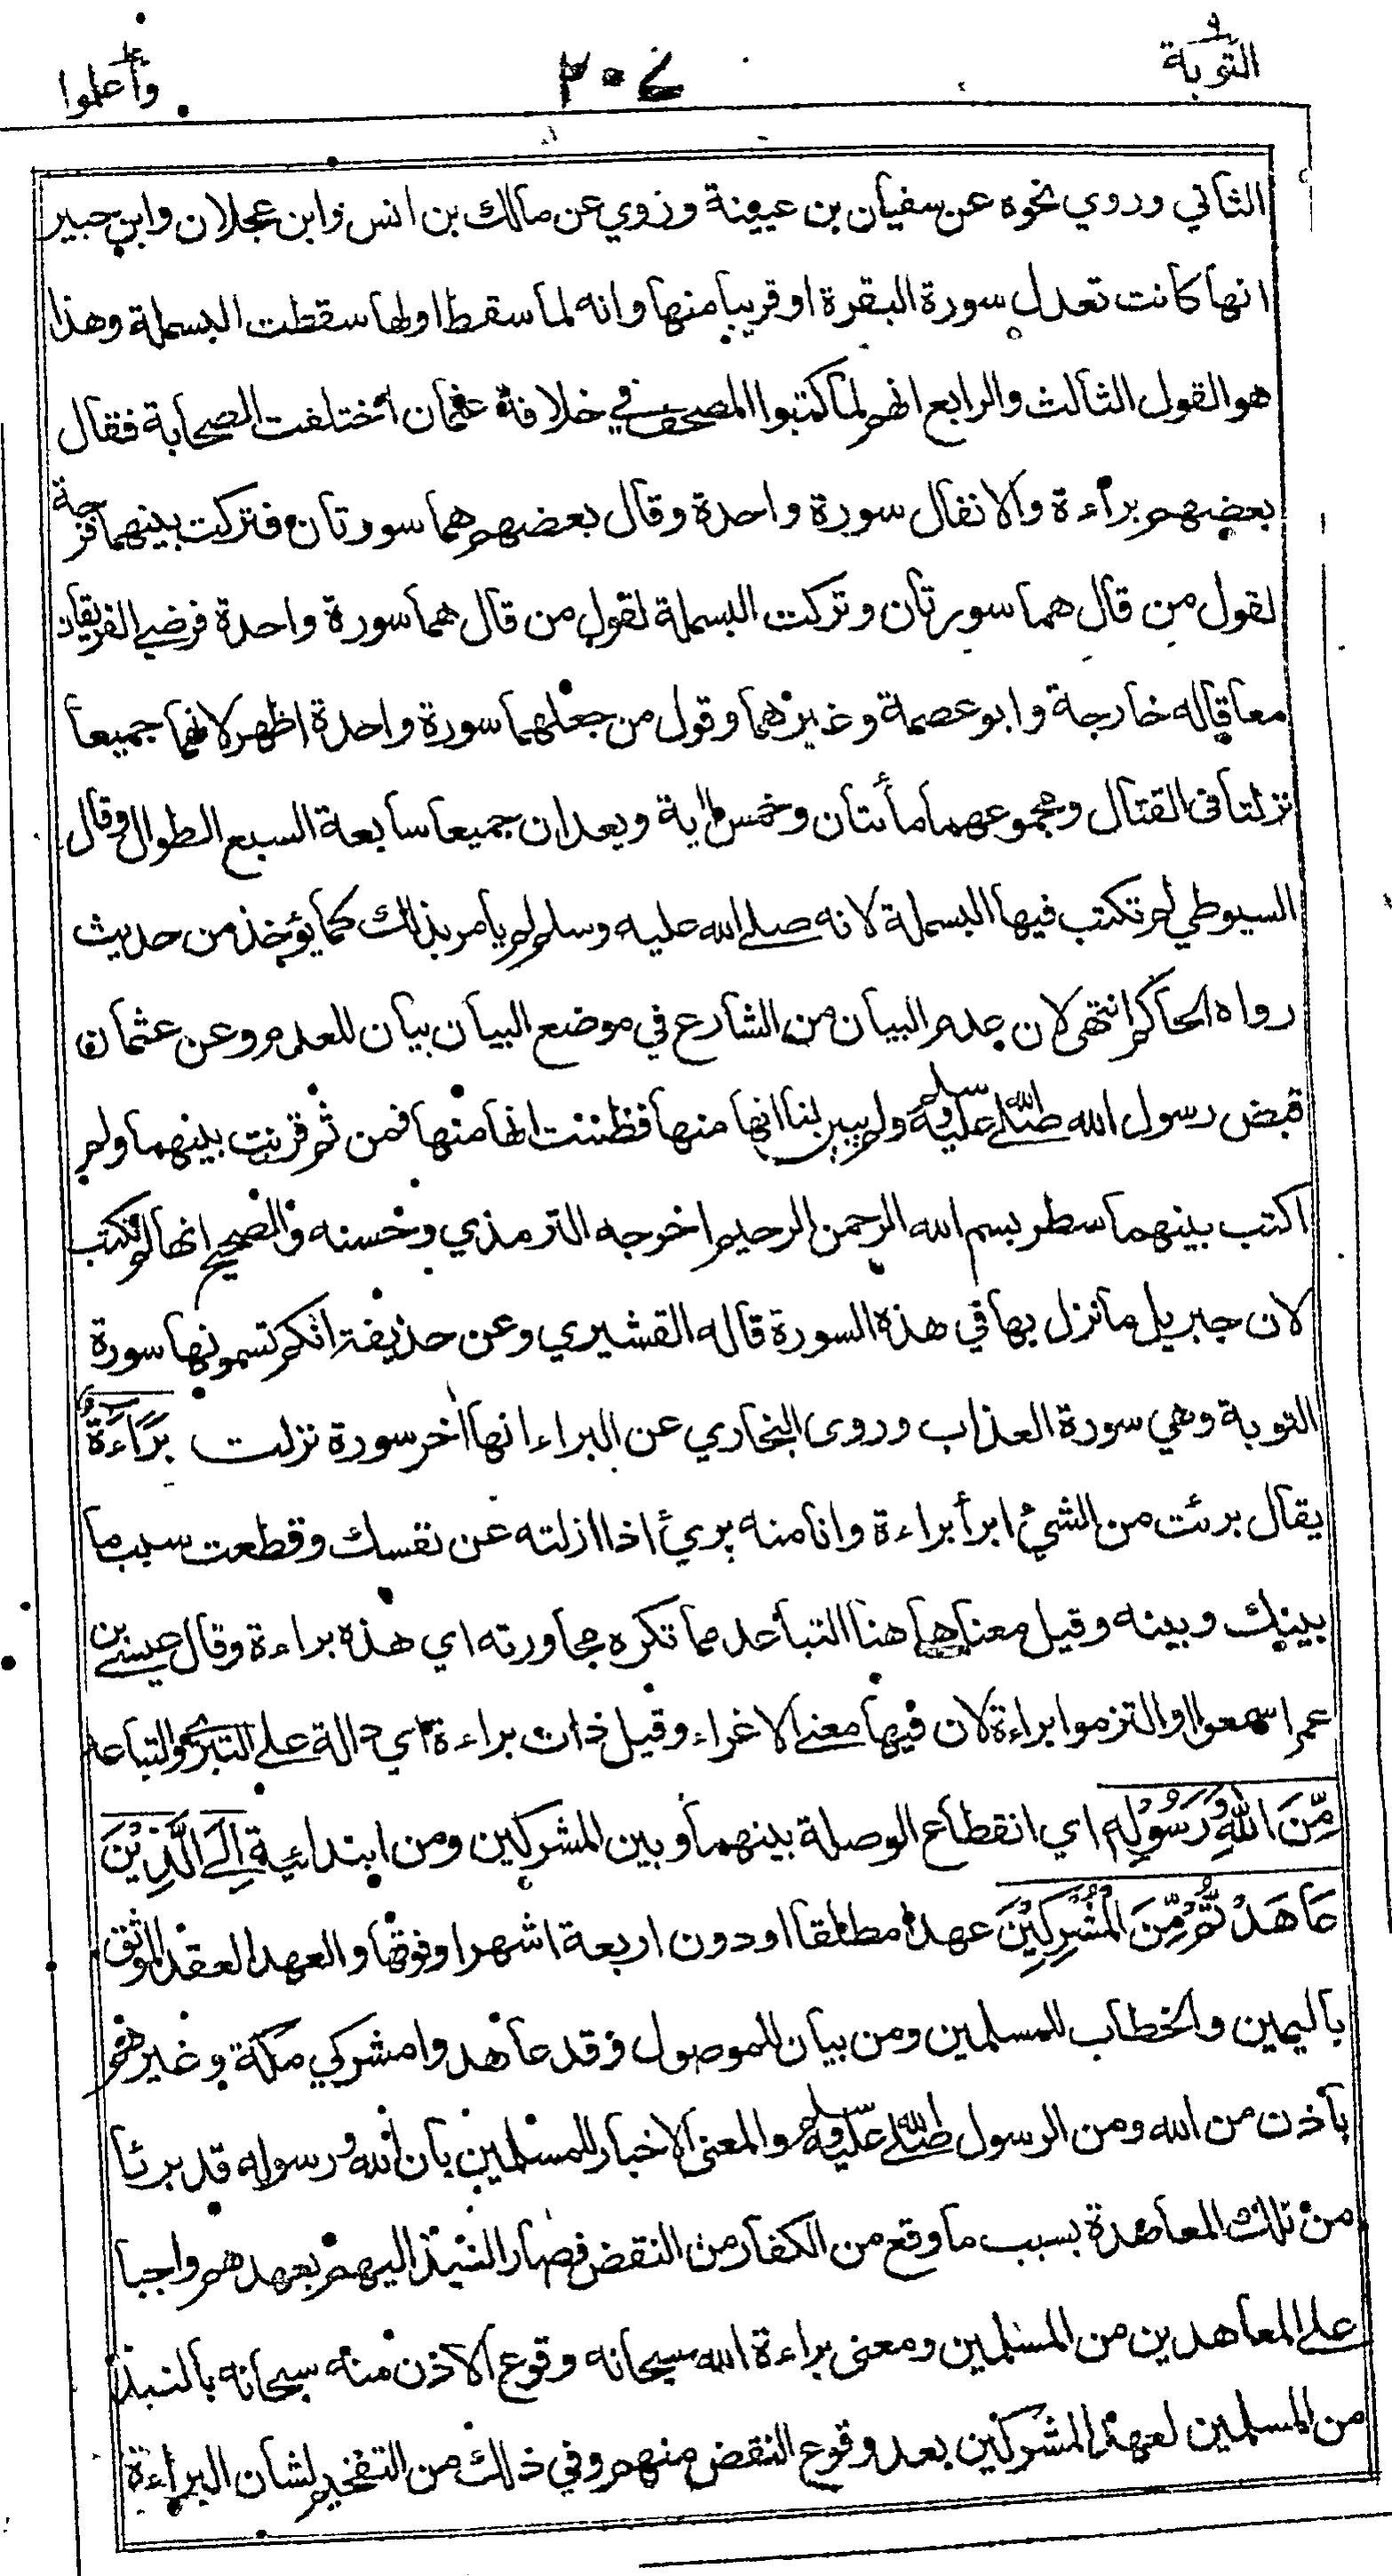 التوبة ٩
٣٠٤
واعلموا ١٠
الثاني وروي نحوه عن سفيان بن عيينة وروي عن مالك بن انس وابن عجلان وابن جبير
انها كانت تعدل سورة البقرة او قريبا منها وانه لما سقط اولها سقطت البسملة وهذا
هو القول الثالث والرابع انهم لما كتبوا المصحف في خلافة عثمان اختلفت الصحابة فقال
بعضهم براءة والانفال سورة واحدة وقال بعضهم هما سورتان فتركت بينهما فرجة
لقول من قال هما سورتان وتركت البسملة لقول من قال هما سورة واحدة فرضي الفريقان
معا قاله خارجة وابو عصمة وغيرهما وقول من جعلهما سورة واحدة اظهر لانهما جميعا
نزلتا في القتال ومجموعهما مأتتان وخمس اية ويعدان جميعا سابعة السبع الطوال وقال
السيوطي لم تكتب فيها البسملة لانه صلى الله عليه وسلم لم يأمر بذلك كما يؤخذ من حديث
رواه الحاكم انتهى لان عدم البيان من الشارع في موضع البيان بيان للعدم وعن عثمان
قبض رسول الله صلى الله عليه وسلم ولم يبين لنا انها منها فظننت انها منها فمن ثم قرنت بينهما ولم
اكتب بينهما سطر بسم الله الرحمن الرحيم اخرجه الترمذي وحسنه والصحيح انها لم تكتب
لان جبريل ما نزل بها في هذه السورة قاله القشيري وعن حذيفة انكم تسمونها سورة
التوبة وهي سورة العذاب وروى البخاري عن البراء انها اخر سورة نزلت بَرَآءَةٌ
يقال برئت من الشيء ابرأ براءة وانا منه بريء اذا ازلته عن نفسك وقطعت سبب ما
بينك وبينه وقيل معناها هنا التباعد مما تكره مجاورته اي هذه براءة وقال عيسى بن
عمر اسمعوا او التزموا براءة لان فيها معنى الاغراء وقيل ذات براءة اي دالة على التبري والتباعد
مِّنَ اللهِ وَرَسُوْلِهٖ اي انقطاع الوصلة بينهما وبين المشركين ومن ابتدائية اِلَى الَّذِيْنَ
عَاهَدْتُّمْ مِّنَ الْمُشْرِكِيْنَ عهدا مطلقا او دون اربعة اشهر او فوقها والعهد العقد الموثق
باليمين والخطاب للمسلمين ومن بيان للموصول وقد عاهدوا مشركي مكة وغيرهم
بأذن من الله ومن الرسول صلى الله عليه وسلم والمعنى الاخبار للمسلمين بان الله ورسوله قد برئا
من تلك المعاهدة بسبب ما وقع من الكفار من النقض فصار النبذ اليهم بعهدهم واجبا
على المعاهدين من المسلمين ومعنى براءة الله سبحانه وقوع الاذن منه سبحانه بالنبذ
من المسلمين لعهد المشركين بعد وقوع النقض منهم وفي ذلك من التفخيم لشان البراءة